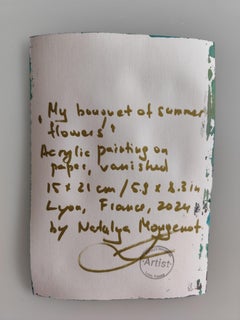 'My bouquet of summer
flowers'
Acrylic painting on
paper, vanished
15 x 21 cm / 5.9 x 8.3 in
Lyon, France, 2024
by Natalya Mougenot
Artist